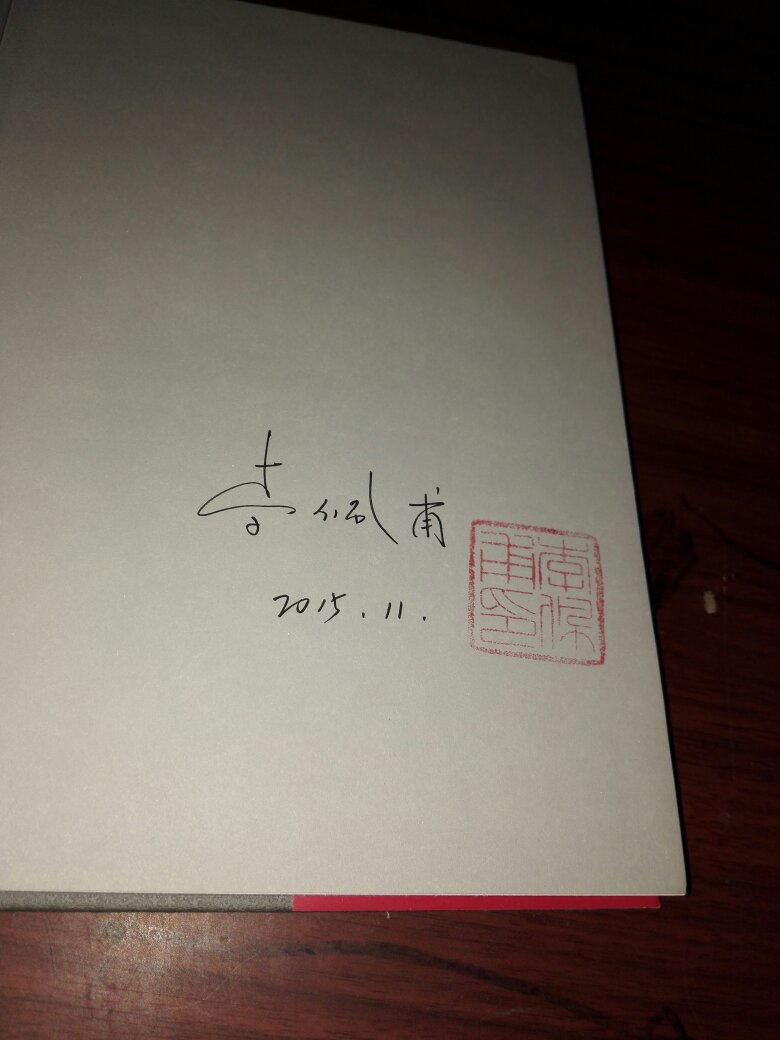 李佩甫
2015.11.
李佩甫印